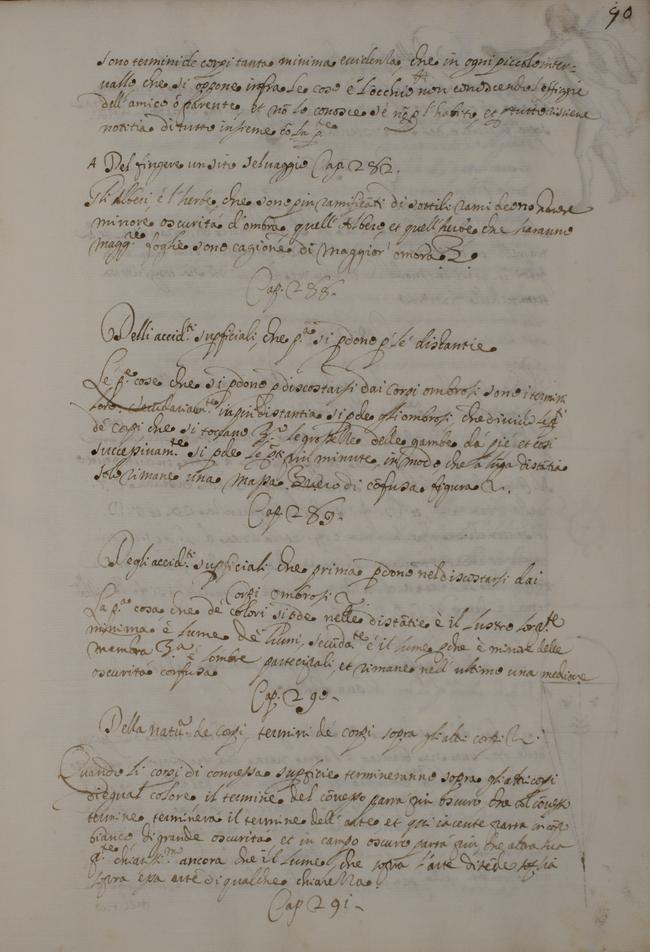 90
sono termini de corpi tanta minima evidentia, che in ogni piccolo inter-
vallo che si oppone infra le cose e l'occhio non conosce l'effigie
dell'amico ò parente, et nõ lo conosce sè nõ p l'habito, et tutto
notitia di tutto insieme cõ la p.te
A Del fingere un sito selvaggio Cap. 287.
Gli Alberi, è l'herbe, che sono piu ramificati di sottili rami devono havere
minore oscurità d'ombra, quell'Albero et quell'herbe che haranno
magg.re foglie sono cagione di maggior' ombra.
Cap. 288.
Delli accid.ti supficiali, che p.a si pdono p le distantie
Le p.e cose che si pdono p discostarsi dai corpi ombrosi sono i termini
loro. in piu distantia si pde gli ombrosi, che divid
de corpi che si toccano 3.o le grossezze delle gambe da piè, et cosi
successivam.te si pde le p.ti piu minute, in modo che a lũga distãtia
solo rimane una massa di cõfusa figura.
Cap. 289.
Degli accid.ti supficiali che prima pdono nel discostarsi dai
Corpi ombrosi
La p.a cosa che de colori si pde nelle distãtie è il lustro lor p.te
minima è lume de lumi, secũda è il lume pche è minore delle
membra 3.a è l'ombre partecipali, et rimane nell'ultimo una mediocre
oscurità confusa.
Cap. 290.
Della nat.a de corpi, termini de corpi sopra gli altri corpi
Quando li corpi di convessa supficie termineranno sopra gli altri corpi
di egual colore il termine del cõvesso parrà piu oscuro che col cõvesso
termine terminerà il termine dell'aste et piu iacente parrà in cãpo
bianco di grande oscurità et in campo oscuro parrà piu che altra sua
p.te chiariss.a ancora che il lume, che sopra l'aste discẽde sia
sopra epsa aste di qualche chiarezza.
Cap 291.